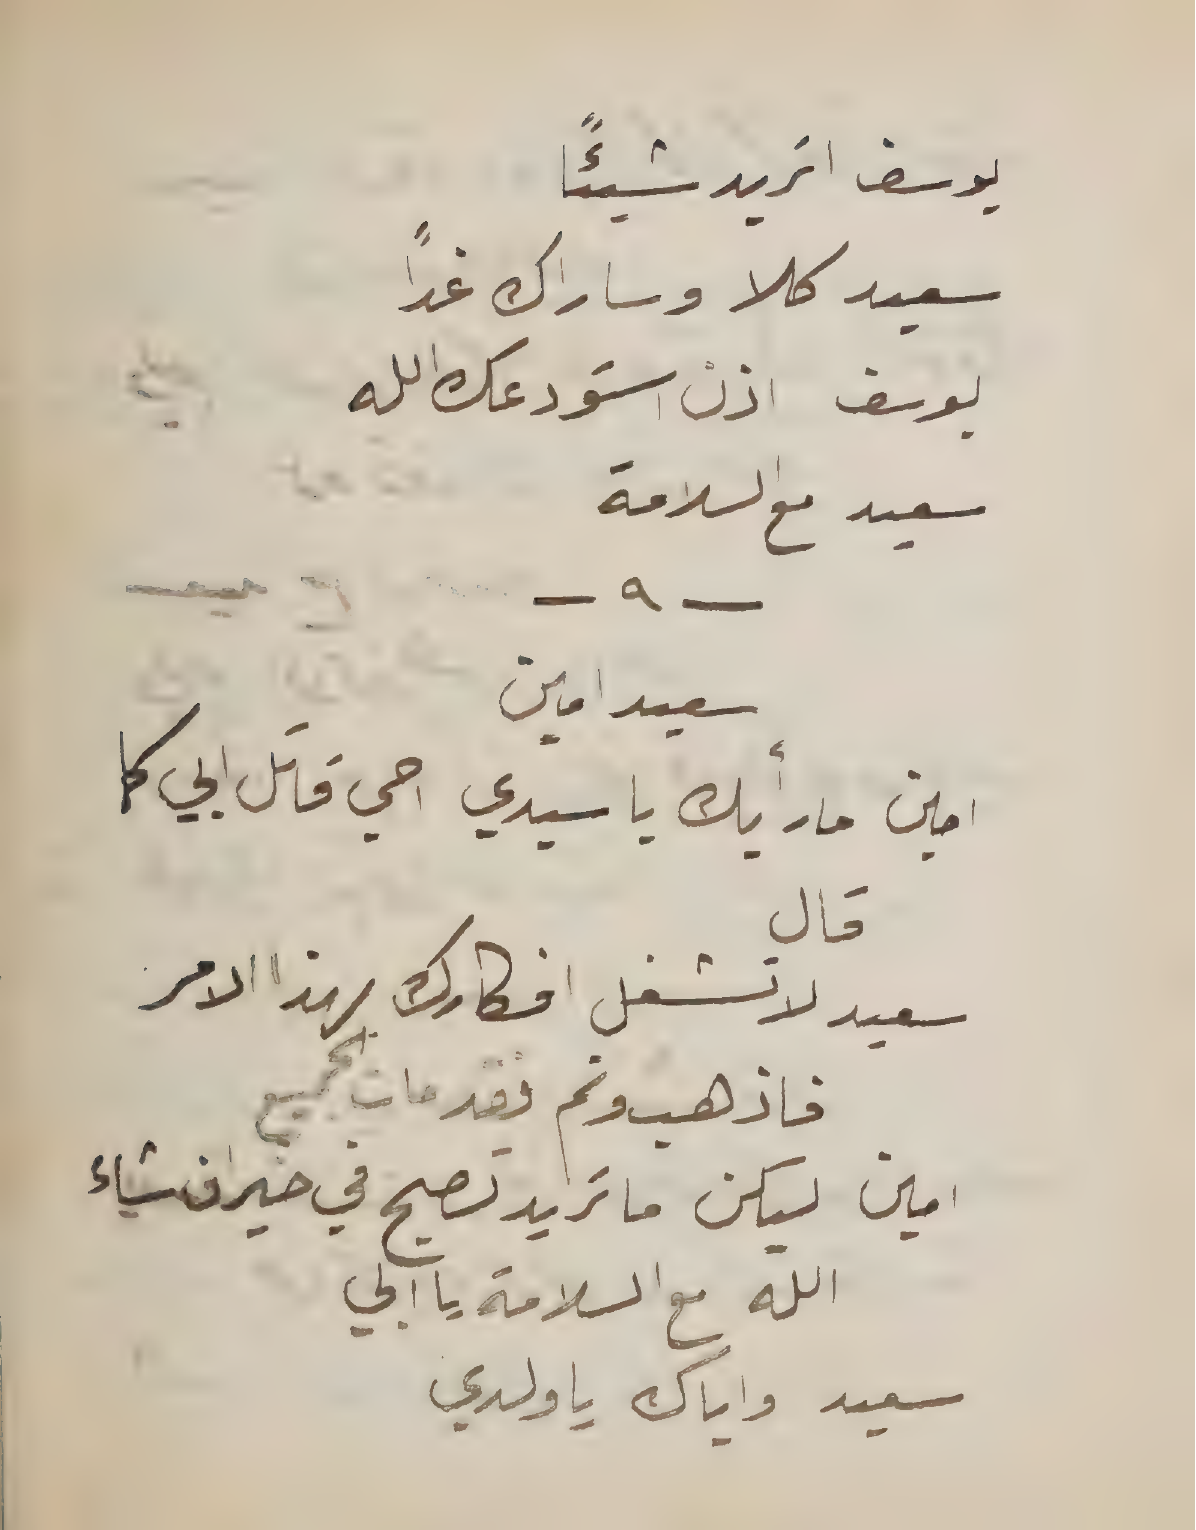 يوسف اتريد شيئًا
سعيد كلا وساراك غدًا
يوسف اذن استودعك الله
سعيد مع السلامة
— ٩ —
سعيد امين
امين ما رأيك يا سيدي اخي قاتل ابي كما
قال
سعيد لا تشغل افكارك بهذا الامر
فاذهب ونم فقد مات الجميع
امين ليكن ما تريد تصبح في خير ان شاء
الله مع السلامة يا ابي
سعيد واياك يا ولدي